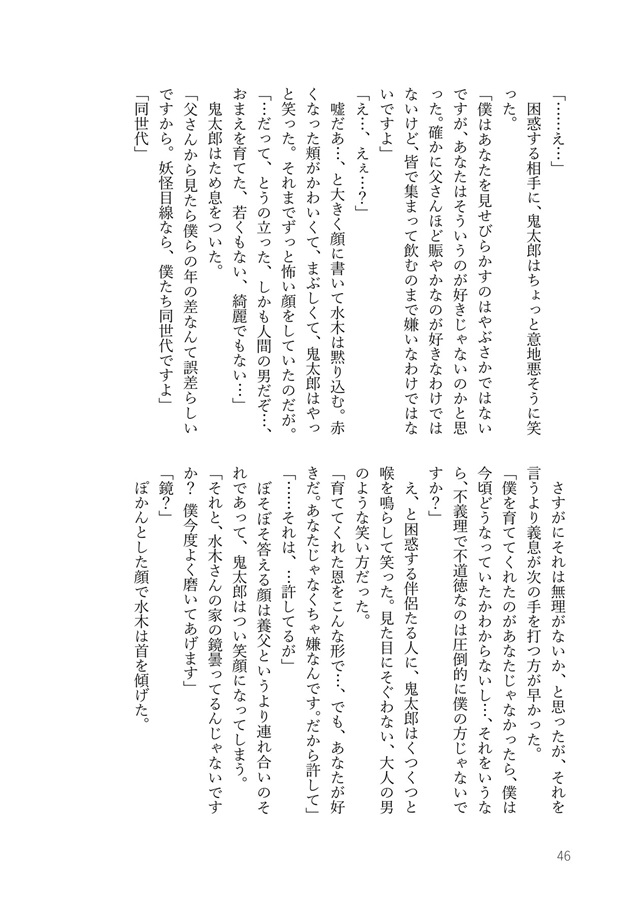 「……え…」
　困惑する相手に、鬼太郎はちょっと意地悪そうに笑
った。
「僕はあなたを見せびらかすのはやぶさかではない
ですが、あなたはそういうのが好きじゃないのかと思
った。確かに父さんほど賑やかなのが好きなわけでは
ないけど、皆で集まって飲むのまで嫌いなわけではな
いですよ」
「え…、えぇ…？」
　嘘だあ…、と大きく顔に書いて水木は黙り込む。赤
くなった頬がかわいくて、まぶしくて、鬼太郎はやっ
と笑った。それまでずっと怖い顔をしていたのだが。
「…だって、とうの立った、しかも人間の男だぞ…、
おまえを育てた、若くもない、綺麗でもない…」
　鬼太郎はため息をついた。
「父さんから見たら僕らの年の差なんて誤差らしい
ですから。妖怪目線なら、僕たち同世代ですよ」
「同世代」
　さすがにそれは無理がないか、と思ったが、それを
言うより義息が次の手を打つ方が早かった。
「僕を育ててくれたのがあなたじゃなかったら、僕は
今頃どうなっていたかわからないし…、それをいうな
ら、不義理で不道徳なのは圧倒的に僕の方じゃないで
すか？」
　え、と困惑する伴侶たる人に、鬼太郎はくつくつと
喉を鳴らして笑った。見た目にそぐわない、大人の男
のような笑い方だった。
「育ててくれた恩をこんな形で…、でも、あなたが好
きだ。あなたじゃなくちゃ嫌なんです。だから許して」
「……それは、…許してるが」
　ぼそぼそ答える顔は養父というより連れ合いのそ
れであって、鬼太郎はつい笑顔になってしまう。
「それと、水木さんの家の鏡曇ってるんじゃないです
か？　僕今度よく磨いてあげます」
「鏡？」
　ぽかんとした顔で水木は首を傾げた。
46